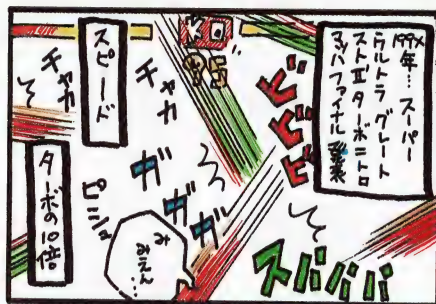 199X
年…スーパー
ウルトラグレート
ストⅡターボニトロ
マッハファイナル発表
KO
ビビビ
スピード
チャカ
チャカ
ガガガ
ターボの10倍
ピシュ
み
みえん…
ズババババ